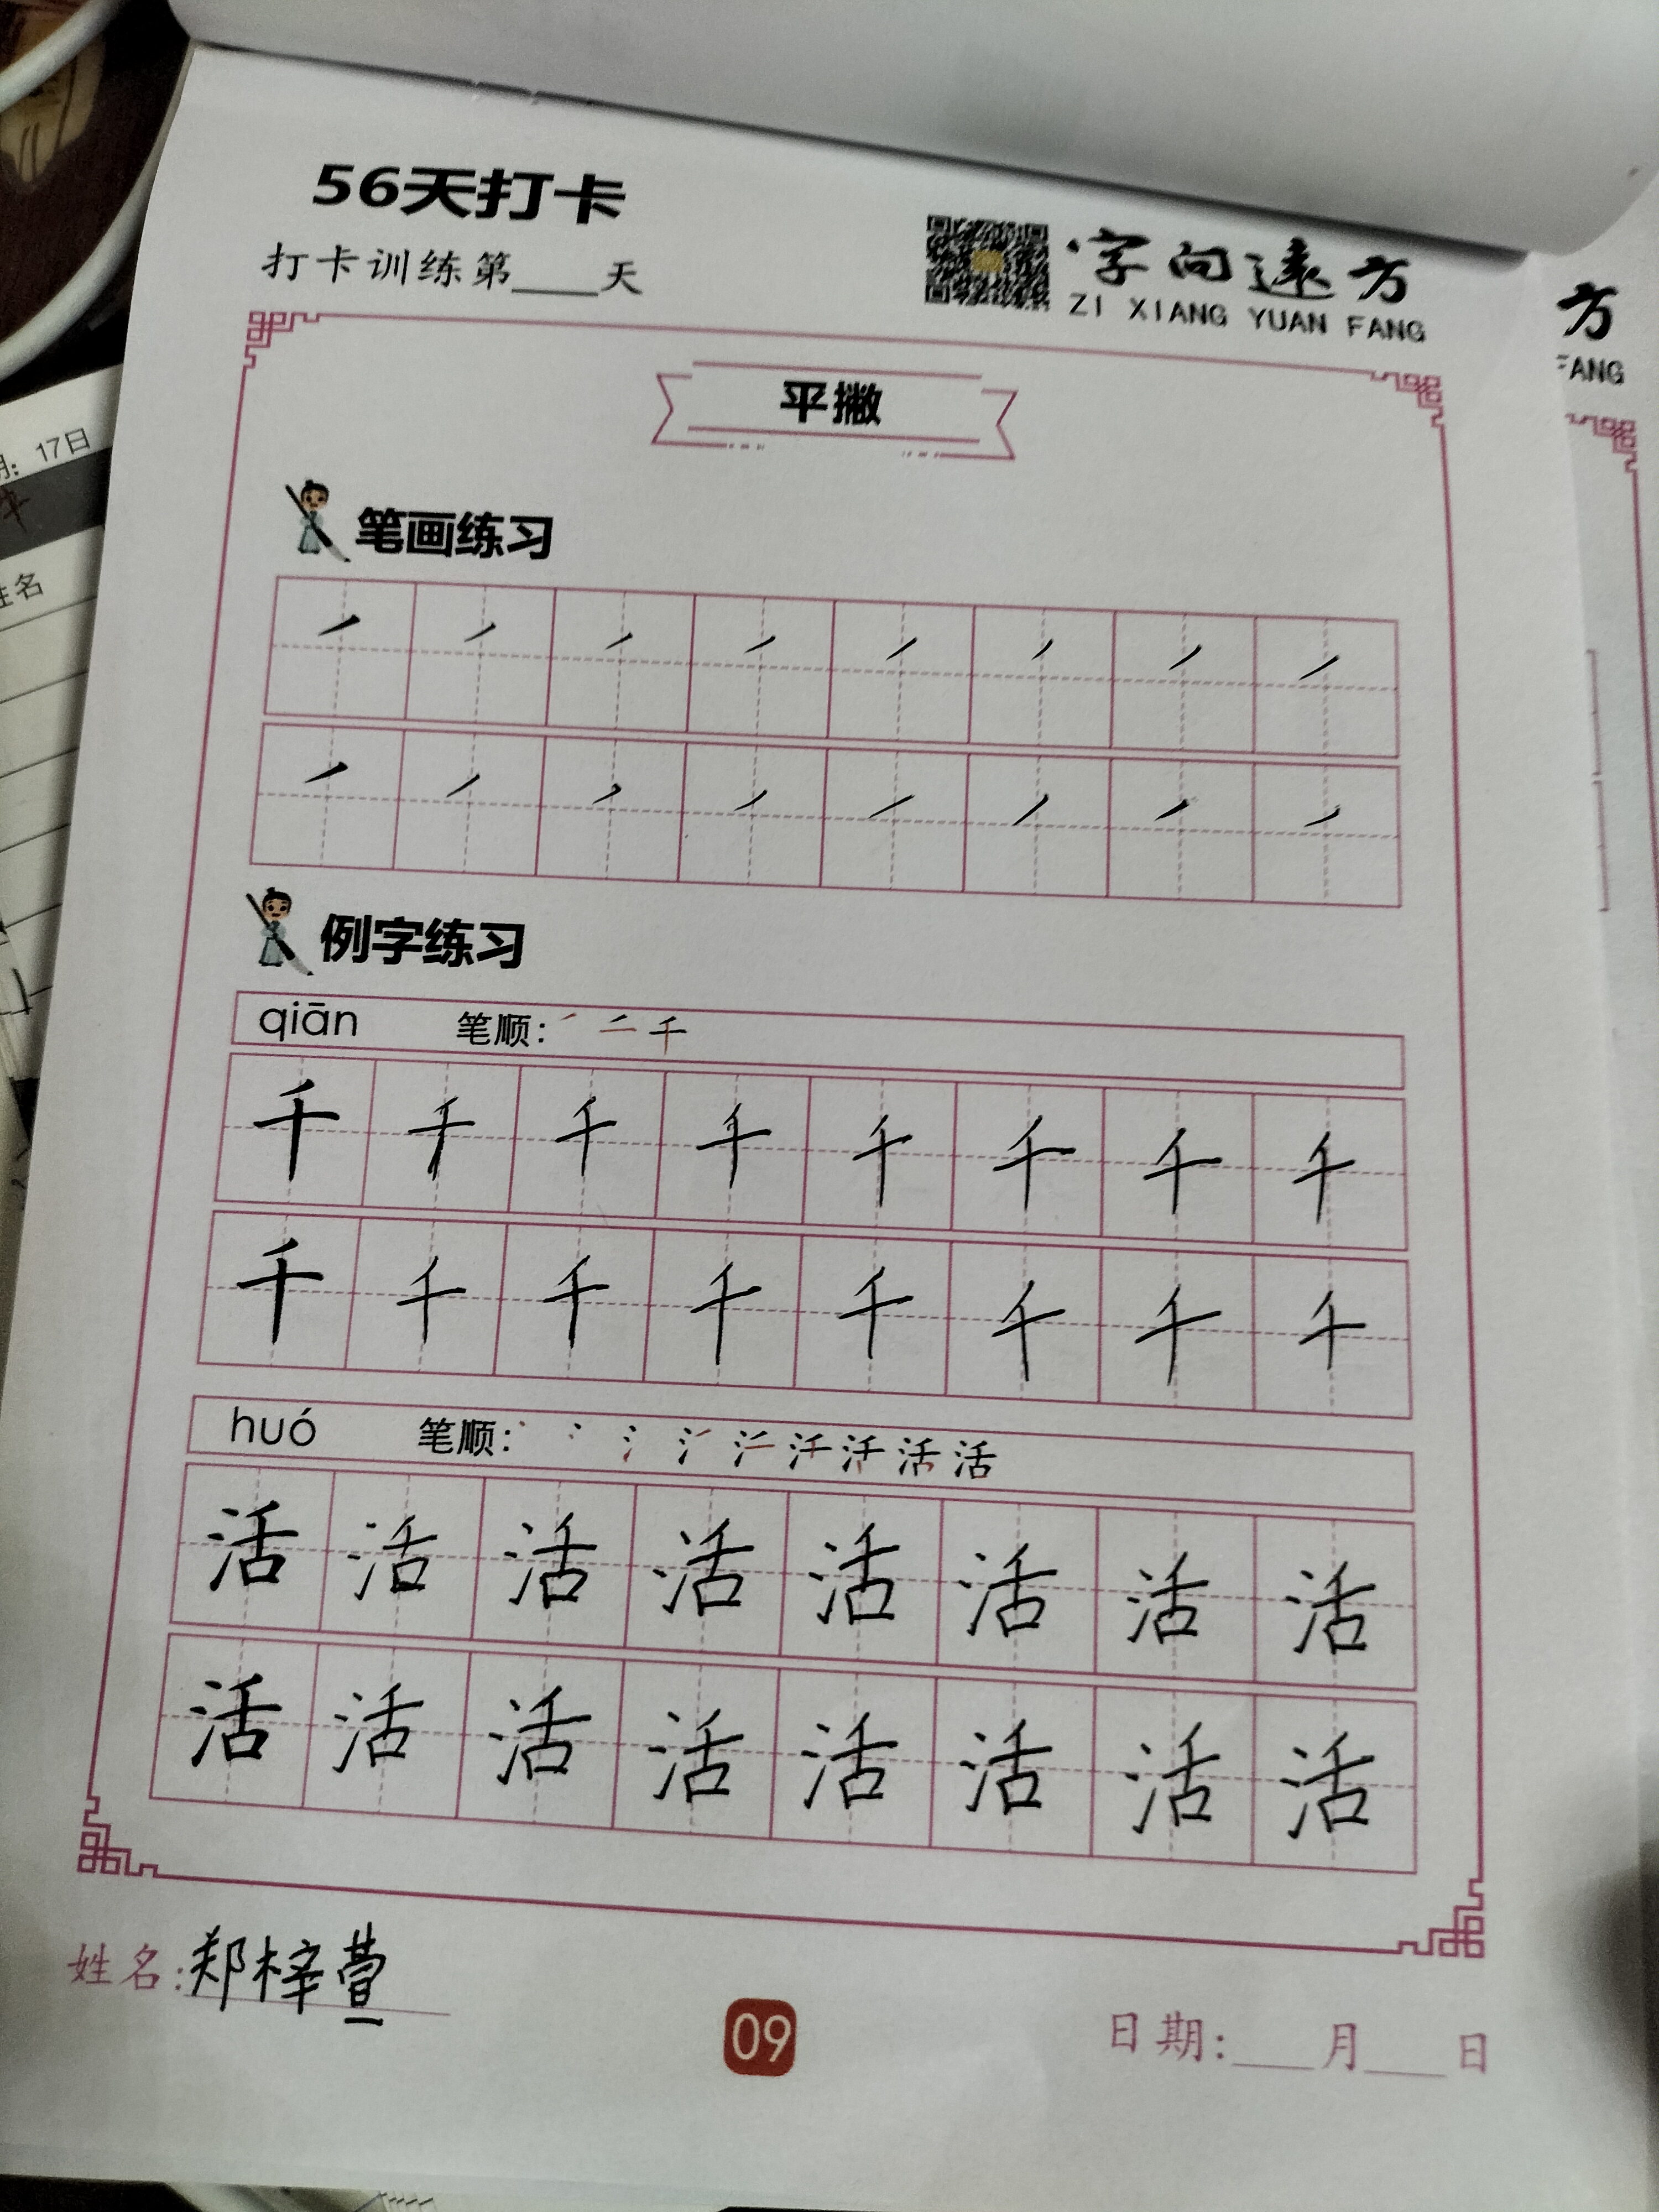 56天打卡
打卡训练第____天
字向远方
ZI XIANG YUAN FANG
方
FANG
17日
姓名
平撇
笔画练习
例字练习
qiān 笔顺:
千 千 千 千 千 千 千 千
千 千 千 千 千 千 千 千
huó 笔顺: 活
活 活 活 活 活 活 活 活
活 活 活 活 活 活 活 活
姓名:郑梓萱
09
日期:___月___日